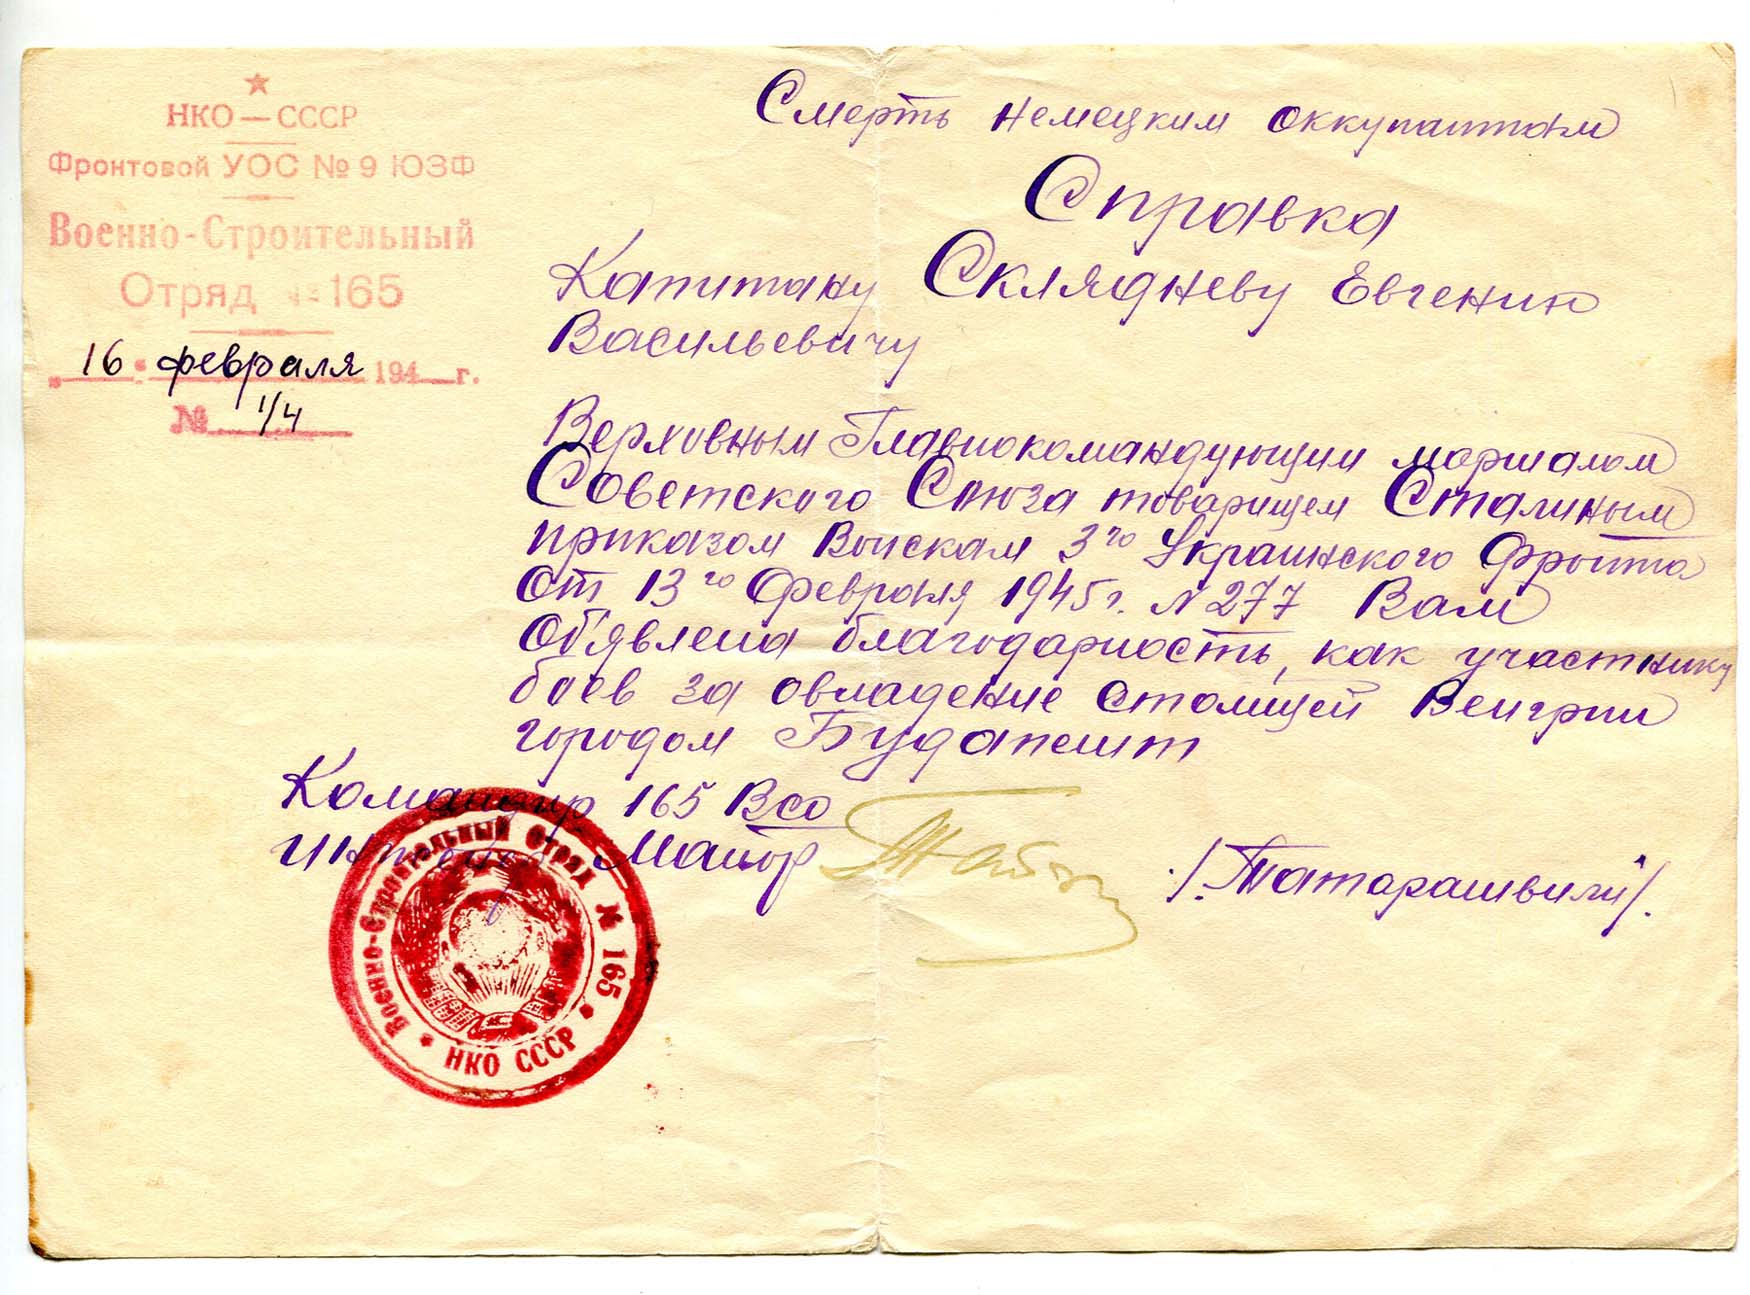 НКО — СССР
Фронтовой УОС № 9 ЮЗФ
Военно-Строительный
Отряд № 165
„16“ февраля 194 г.
№ 1/4
Смерть немецким оккупантам
Справка
Капитану Склядневу Евгению
Васильевичу
Верховным Главнокомандующим маршалом
Советского Союза товарищем Сталиным
приказом Войскам 3го Украинского Фронта
От 13го Февраля 1945г. N 277 Вам
Объявлена благодарность, как участнику
боев за овладение столицей Венгрии
городом Будапешт
Командир 165 ВСО
Инженер Майор
/Татарашвили/.
Военно-Строительный Отряд № 165
НКО СССР